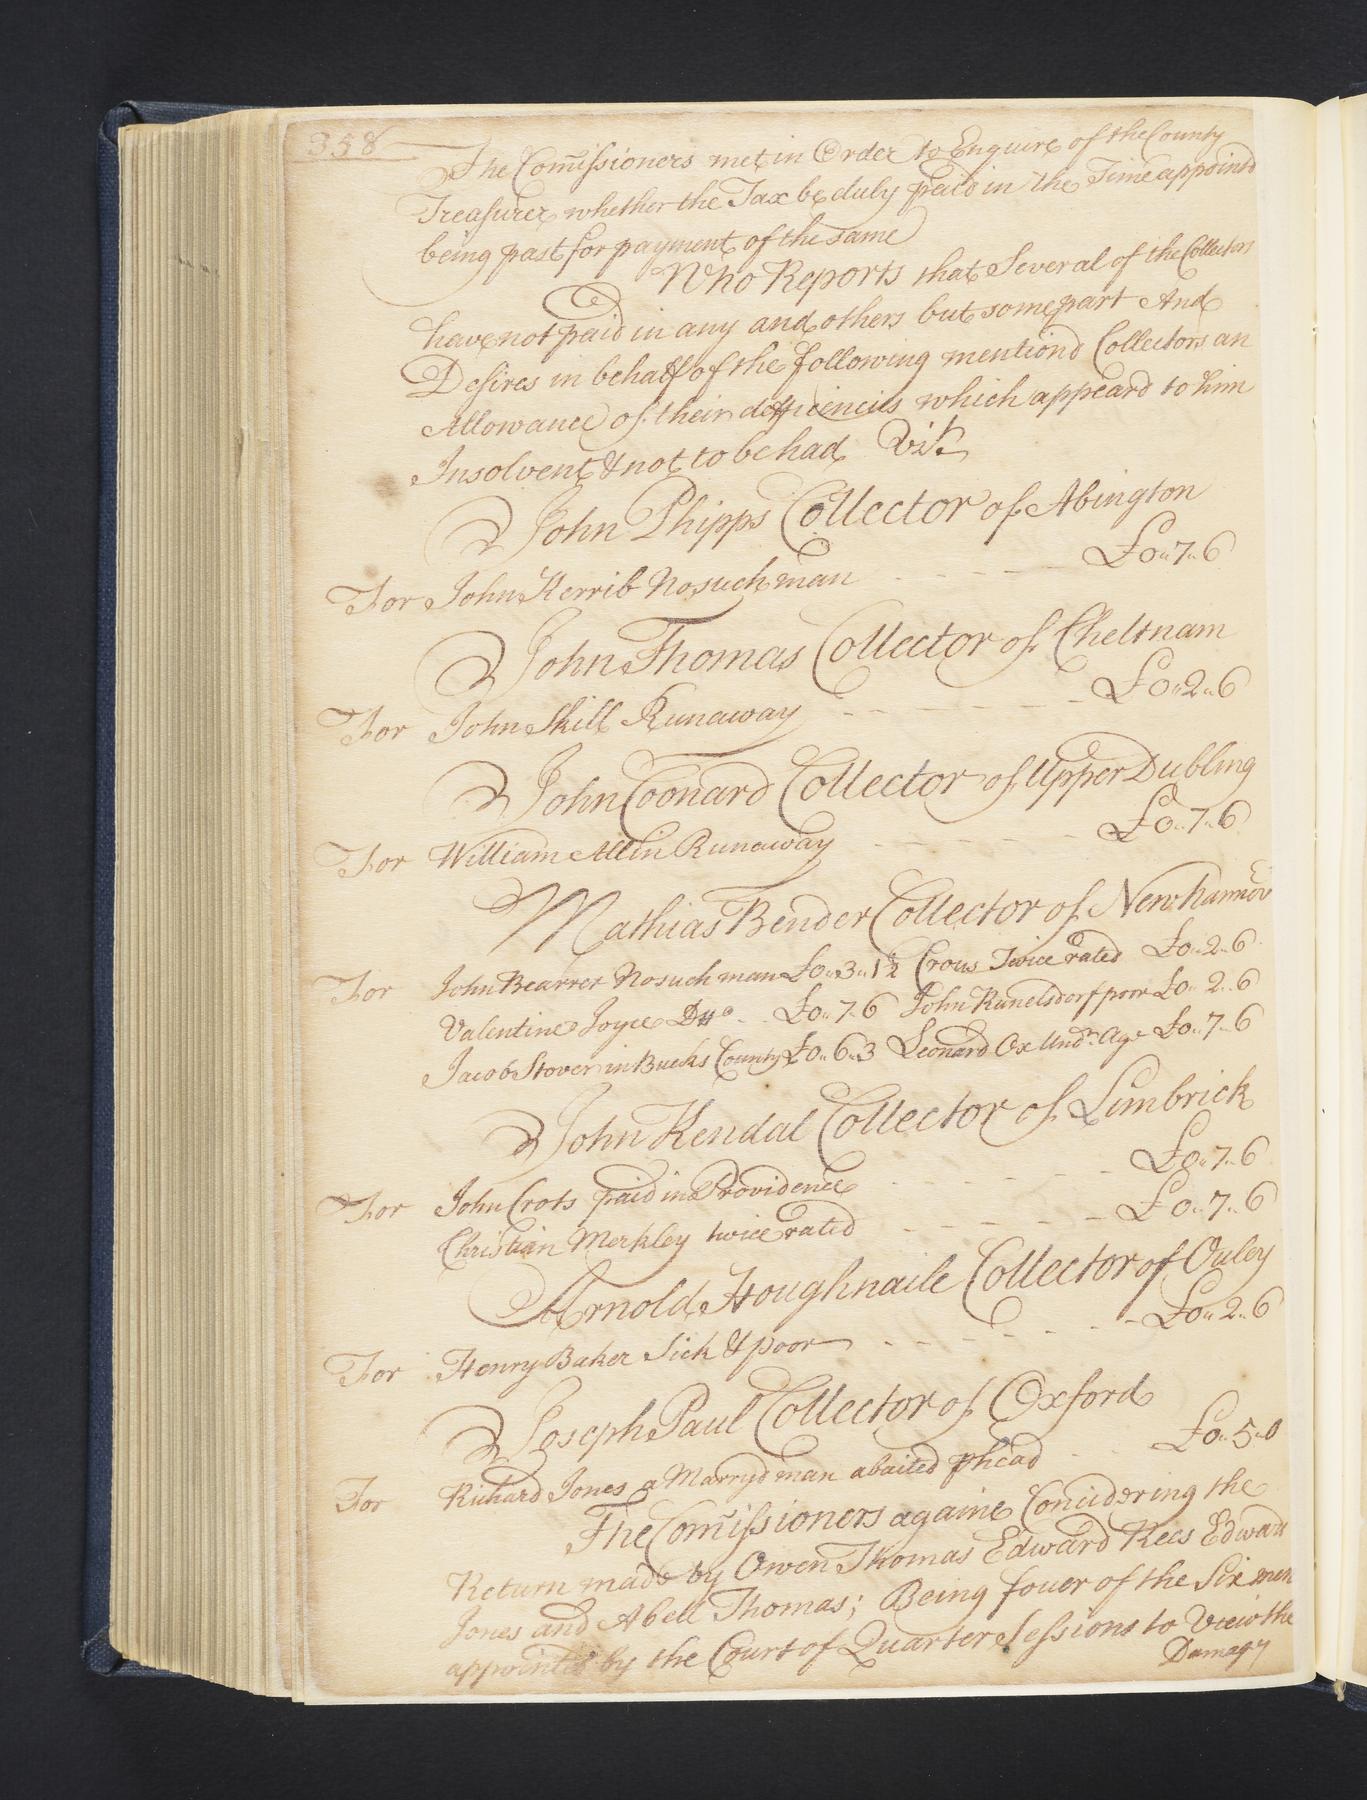 358
The Com̃issioners met in Order to Enquire of the County
Treasurer whether the Tax be duly paid in the Time appointd
being past for payment of the same
Who Reports that Several of the Collectors
have not paid in any and others but some part And
Desires in behalf of the following mentiond Collectors an
Allowance of their defficiencies which appeard to him
Insolvent & not to be had Vizt.
John Phipps Collector of Abington
For John Kerrib No such man £0"7"6
John Thomas Collector of Cheltnam
For John Skill Runaway £0"2"6
John Coonard Collector of Upper Dubling
For William Allin Runaway £0"7"6
Mathias Bender Collector of New hannov
For John Bearrer No such man £0"3"1½ Crous Twice rated £0"2"6
Valentine Joyce Do £0"7"6 John Runelsdorf poor £0"2"6
Jacob Stover in Bucks County £0"6"3 Leonard Ox Undr. Age £0"7"6
John Kendal Collector of Limbrick
For John Crots paid in Providence £0"7"6
Christian Merkley twice rated £0"7"6
Arnold Houghnaile Collector of Ouley
For Henry Baker Sick & poor £0"2"6
Joseph Paul Collector of Oxford
For Richard Jones a Marryd man abaited phead £0"5"0
The Com̃issioners againe Concidering the
Return made by Owen Thomas Edward Rees Edward
Jones and Abell Thomas; Being fouer of the Six men
appointed by the Court of Quarter Sessions to View the
Damage